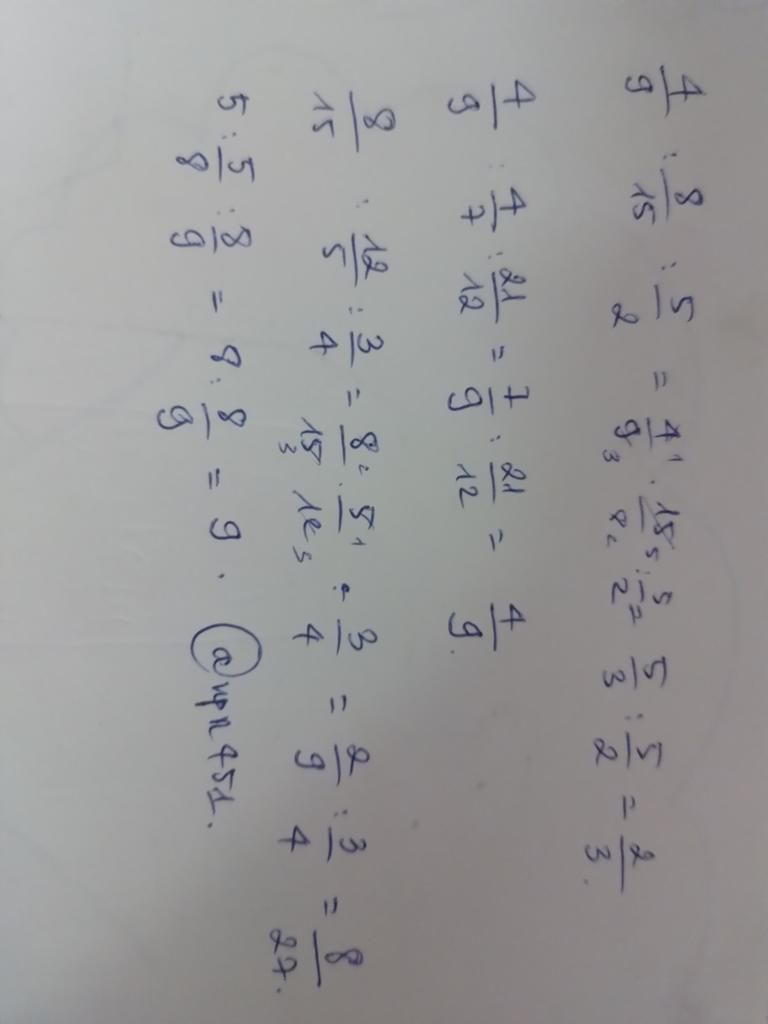 4/9 : 8/15 : 5/2 = 4/9 1 3 · 15/8 5 2 : 5/2 = 5/3 : 5/2 = 2/3.
4/9 : 4/7 : 21/12 = 7/9 : 21/12 = 4/9.
8/15 : 12/5 : 3/4 = 8/15 2 3 · 5/12 1 3 : 3/4 = 2/9 : 3/4 = 8/27.
5 : 5/8 : 8/9 = 8 : 8/9 = 9. @upr451.